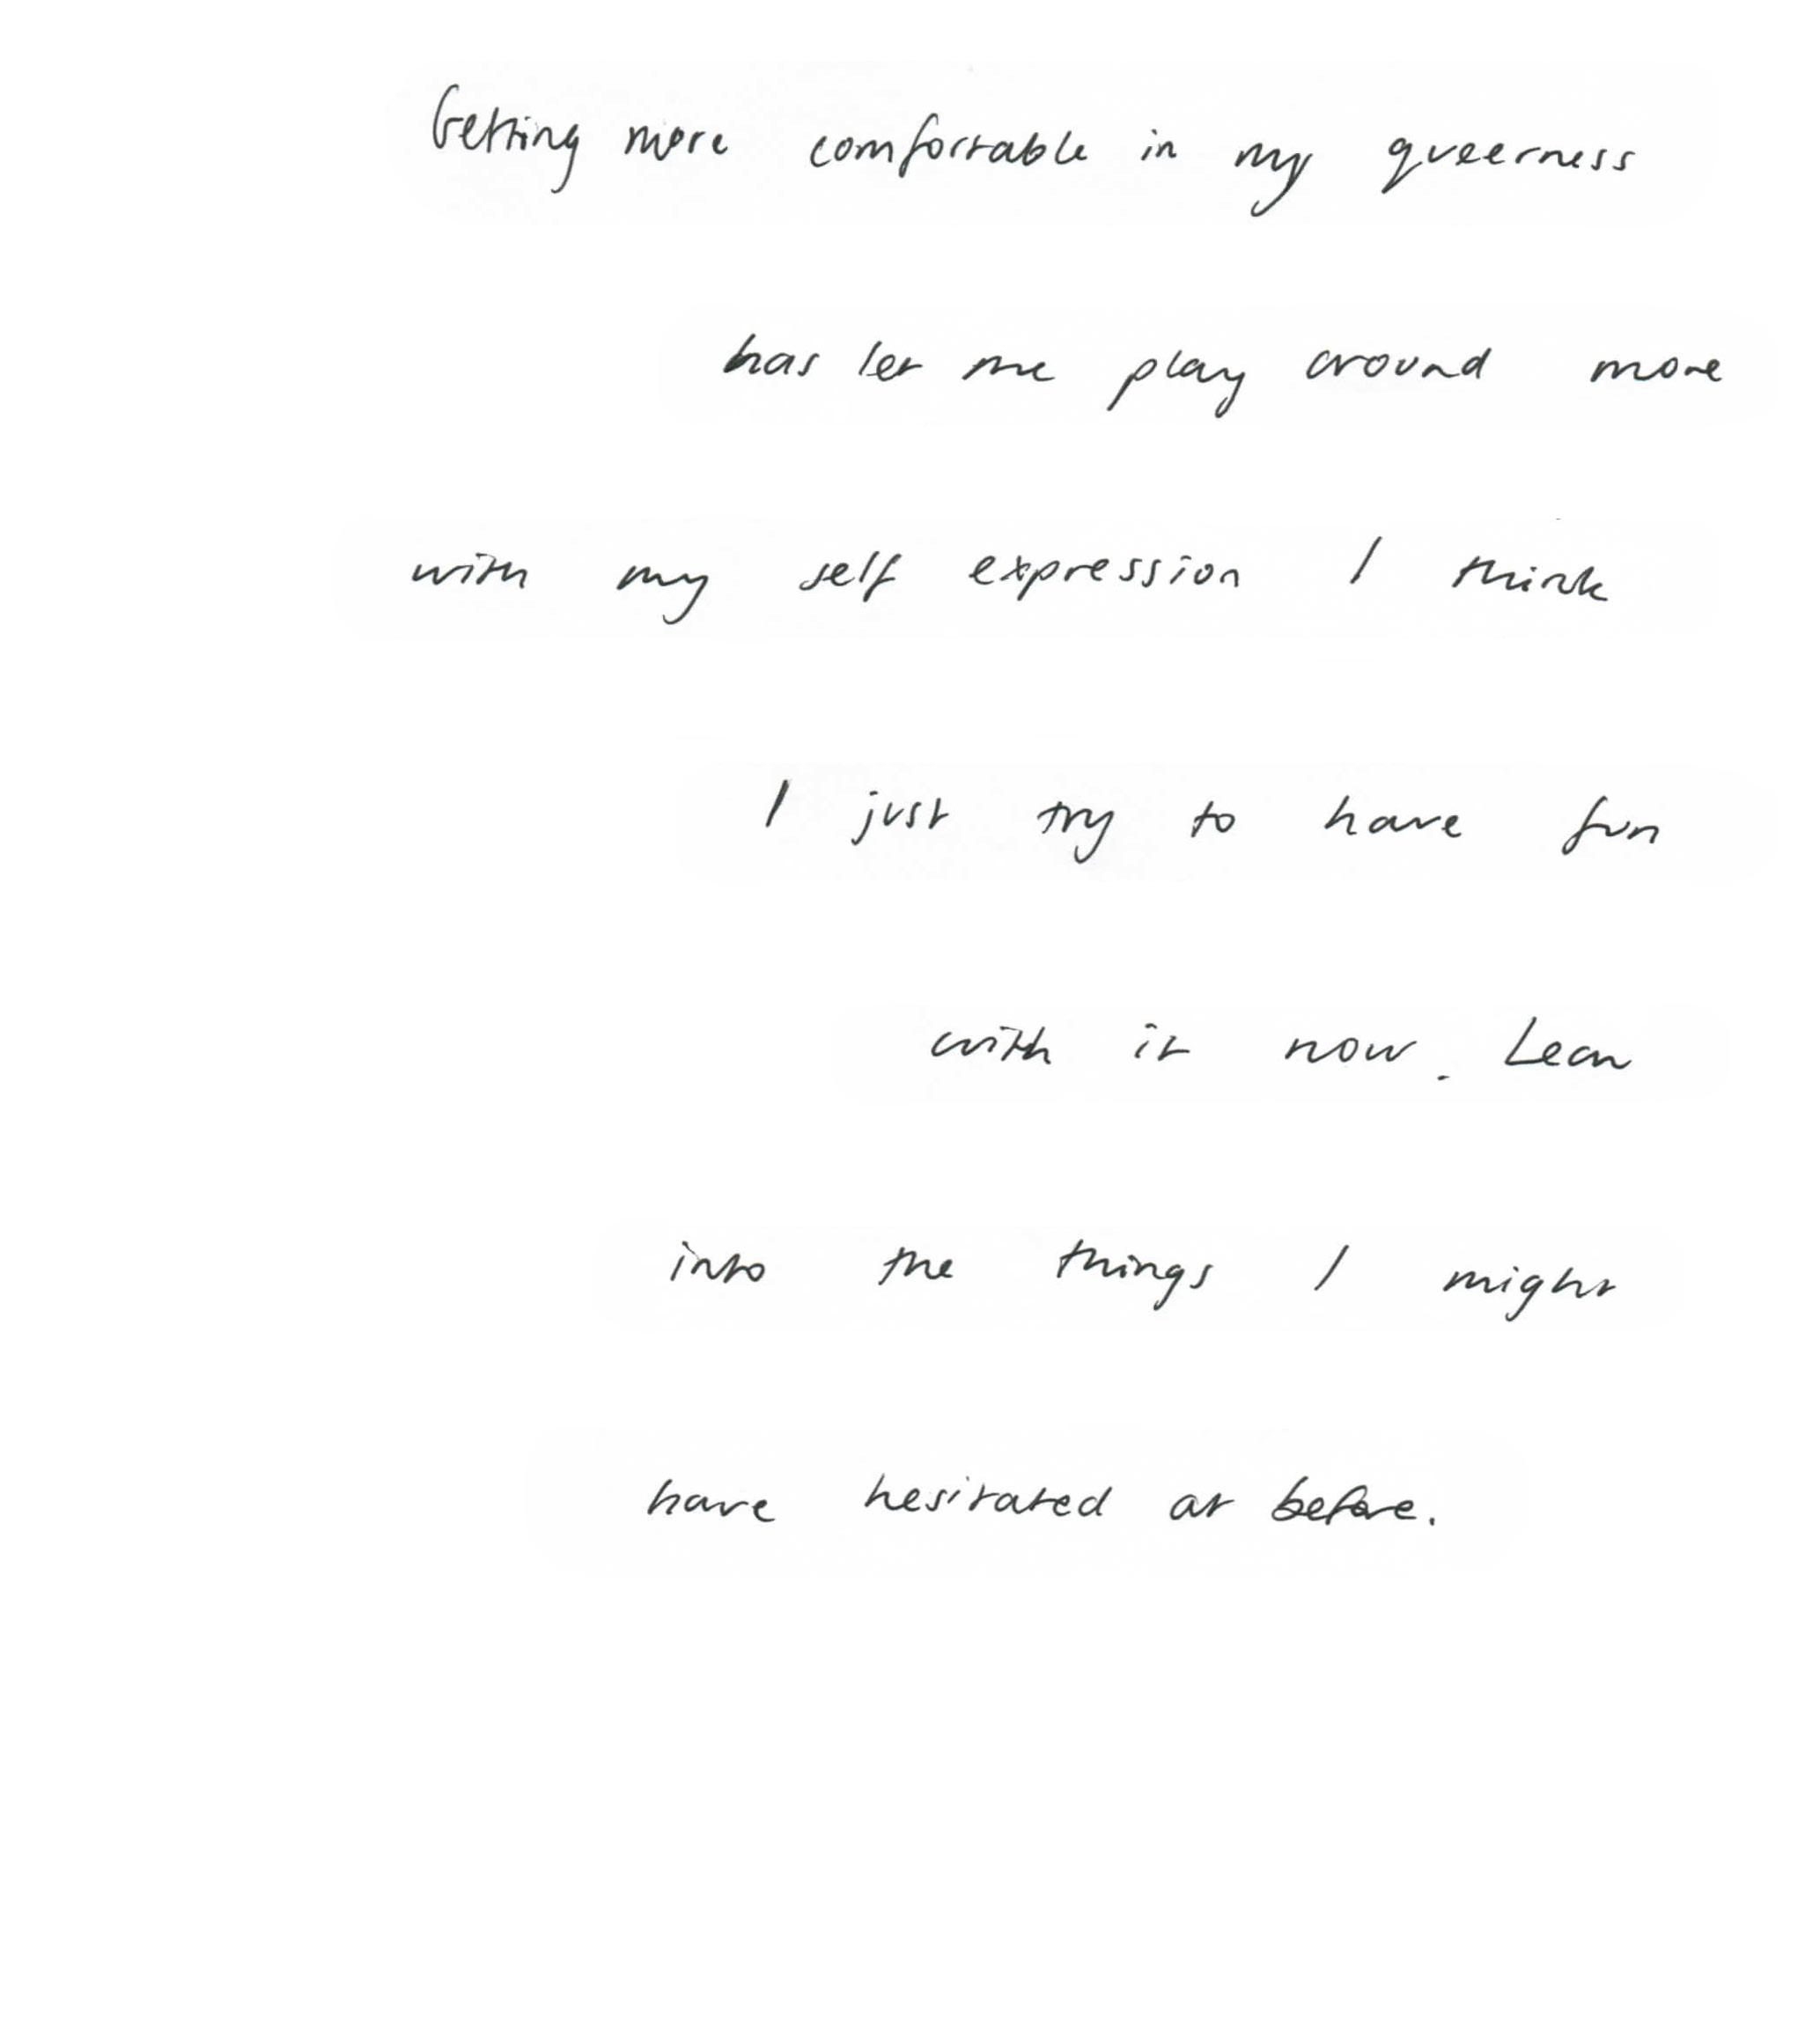 Getting more comfortable in my queerness
has let me play around more
with my self expression I think
I just try to have fun
with it now. Lean
into the things I might
have hesitated at before.